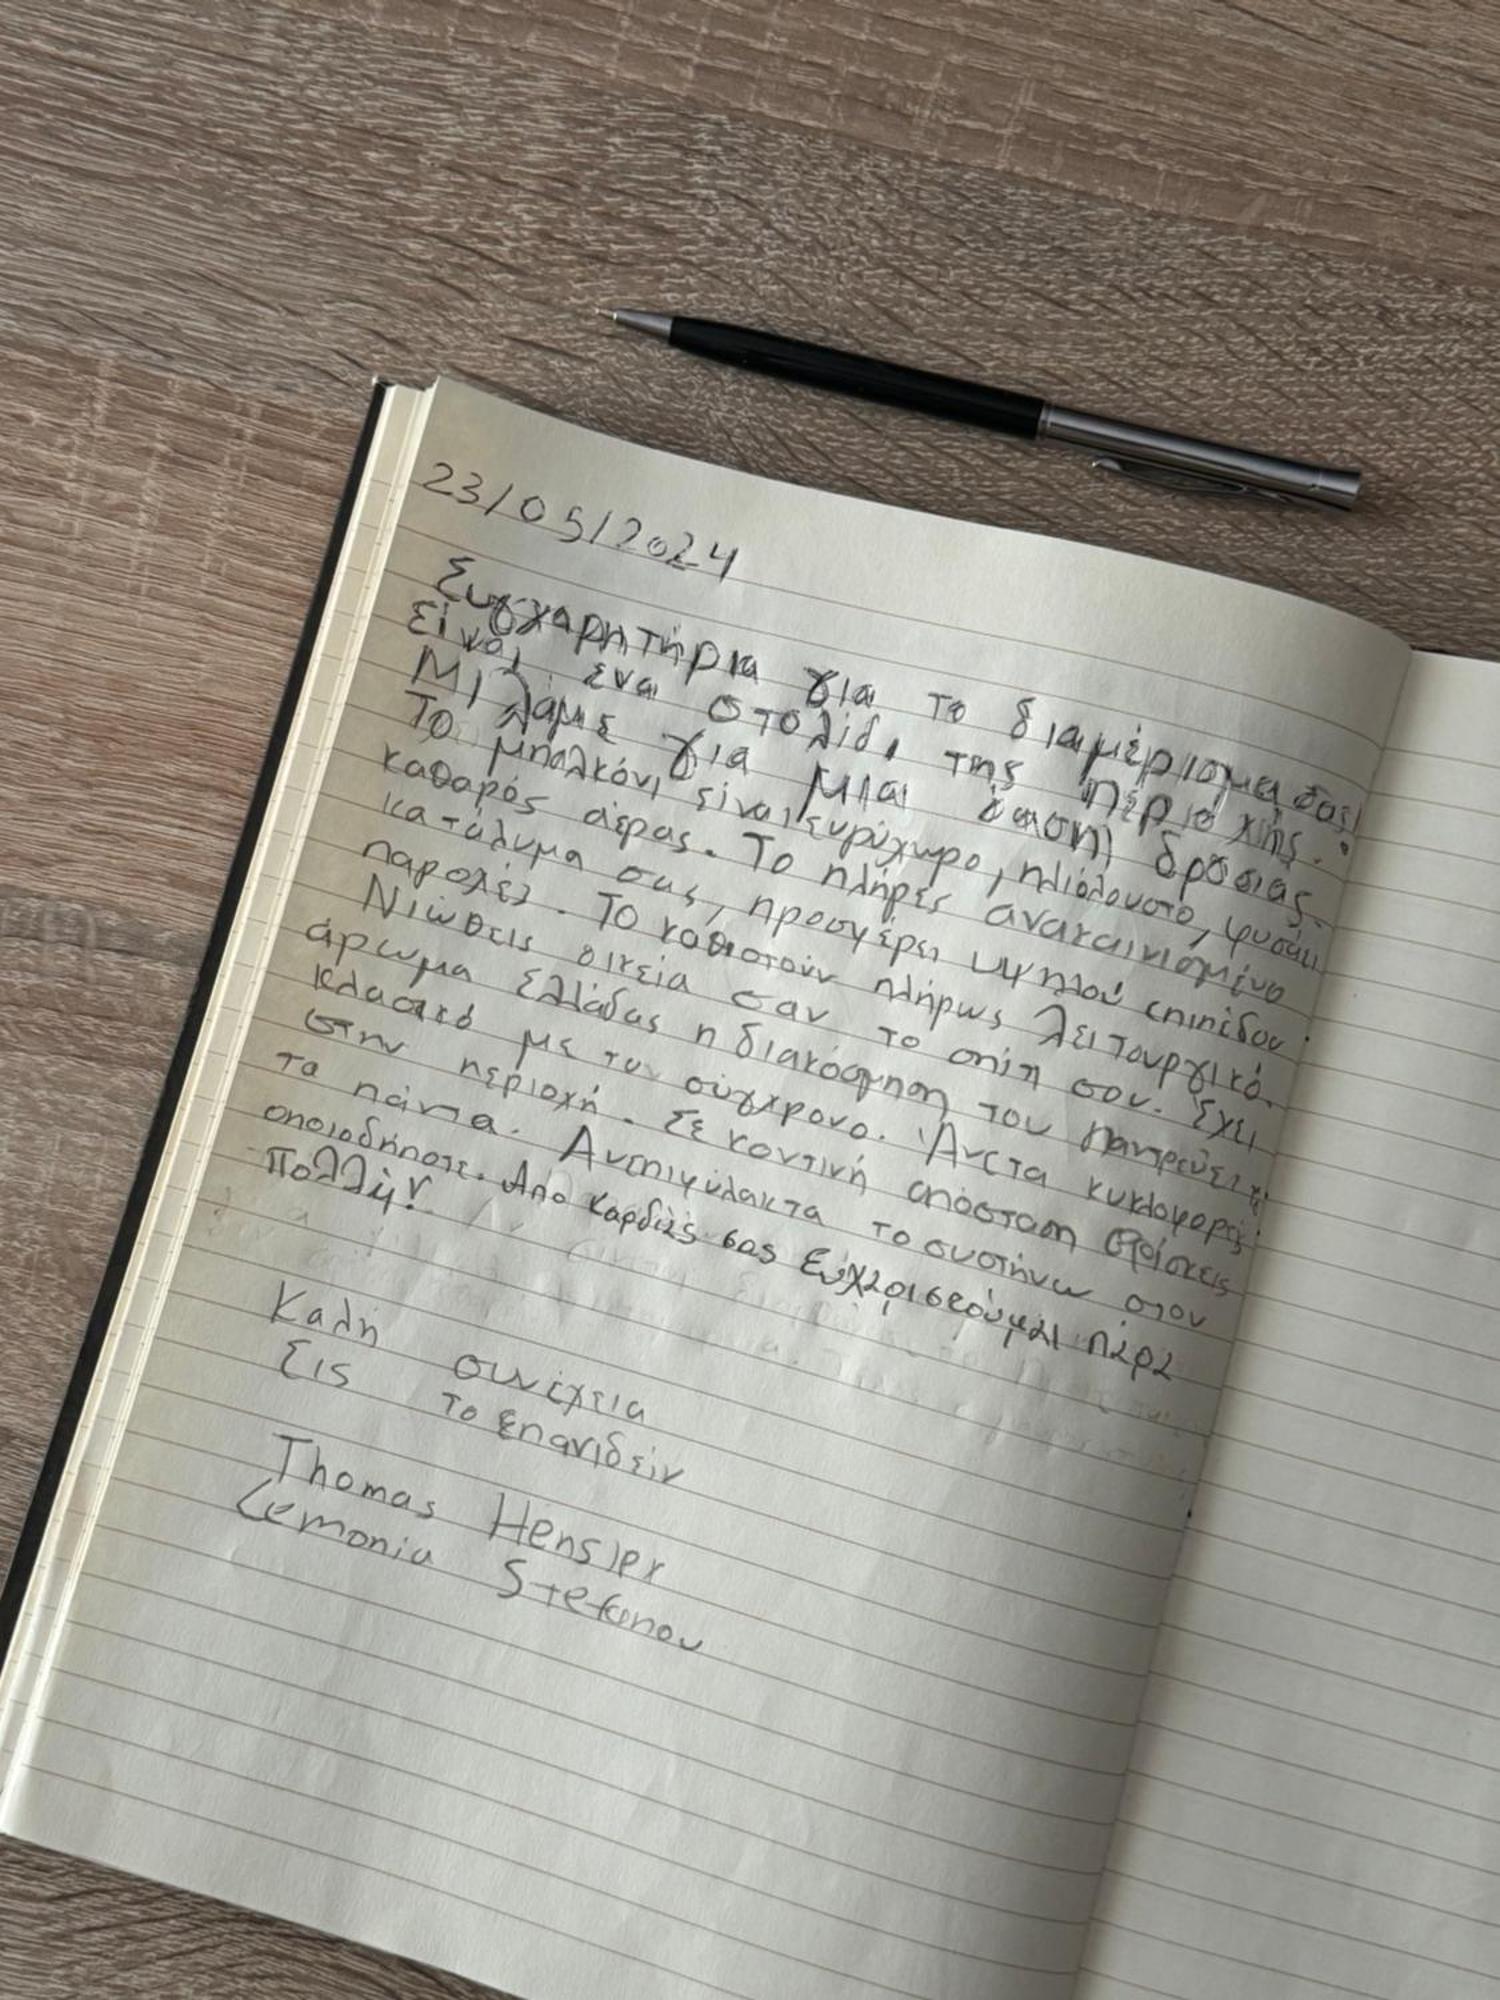 23/05/2024
Συγχαρητήρια για το διαμέρισμα σας!
Είναι ένα στολίδι της περιοχής.
Μιλάμε για μια όαση δροσιάς.
Το μπαλκόνι είναι ευρύχωρο, ηλιόλουστο, φυσάει
καθαρός αέρας. Το πλήρες ανακαινισμένο
κατάλυμα σας, προσφέρει υψηλού επιπέδου
παροχές. Το καθιστούν πλήρως λειτουργικό.
Νιώθεις οικεία σαν το σπίτι σου. Έχει
άρωμα Ελλάδας η διακόσμηση του παντρεύει το
κλασικό με το σύγχρονο. Άνετα κυκλοφορείς
στην περιοχή. Σε κοντινή απόσταση βρίσκεις
τα πάντα. Ανεπιφύλακτα το συστήνω στον
οποιοδήποτε. Από καρδιάς σας Ευχαριστούμαι πάρα
Πολλή!
Καλή συνέχεια
Εις το επανιδείν
Thomas Hensler
Lemonia Stefanou